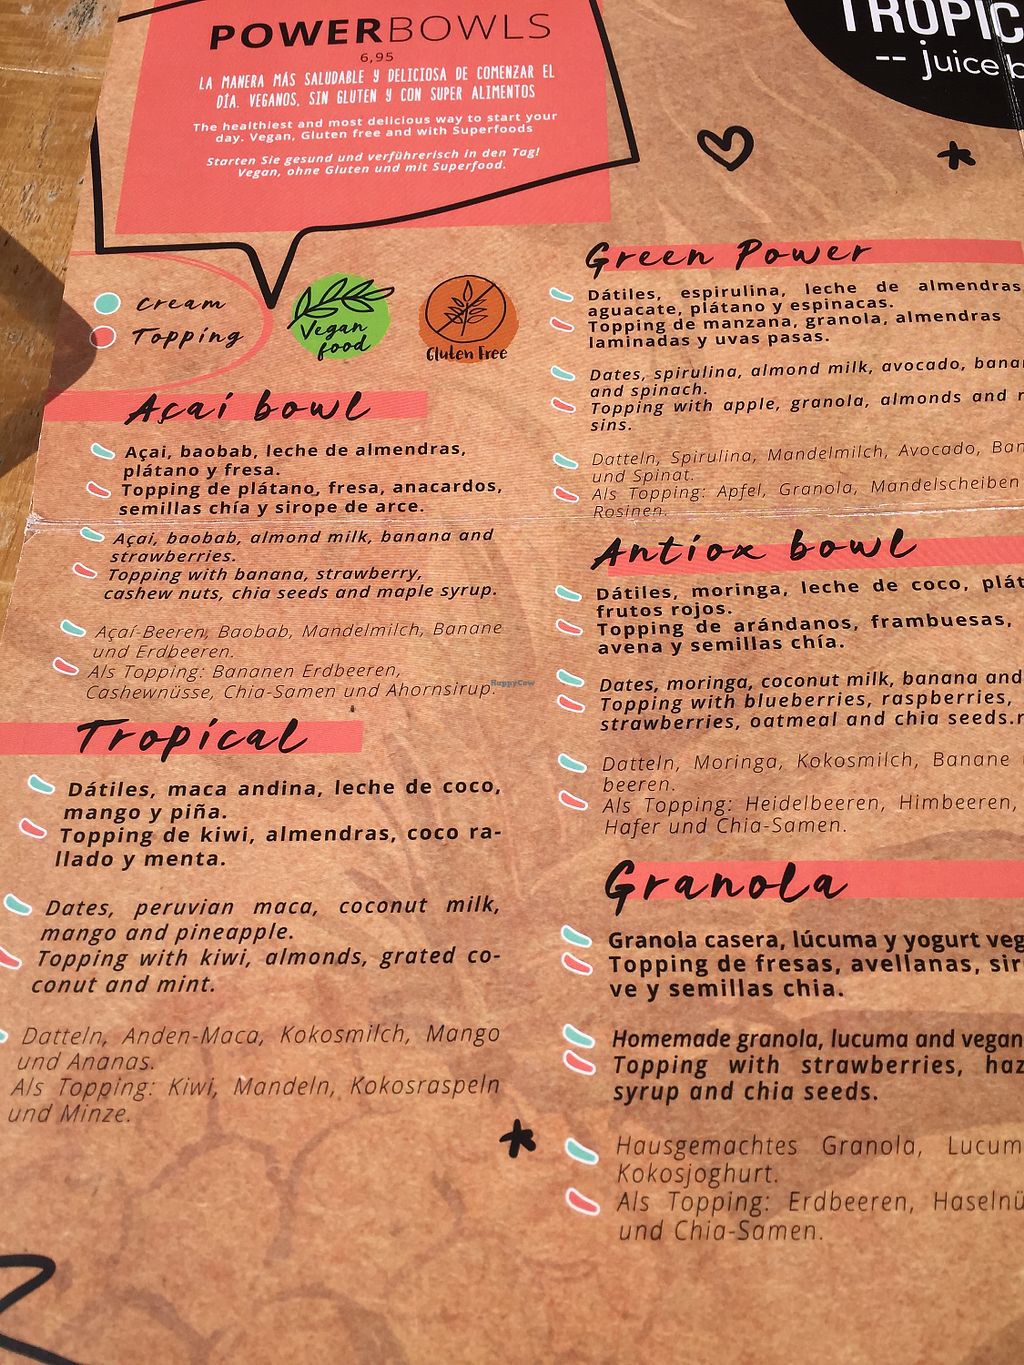 POWERBOWLS
6,95
LA MANERA MÁS SALUDABLE Y DELICIOSA DE COMENZAR EL
DÍA. VEGANOS, SIN GLUTEN Y CON SUPER ALIMENTOS
The healthiest and most delicious way to start your
day. Vegan, Gluten free and with Superfoods
Starten Sie gesund und verführerisch in den Tag!
Vegan, ohne Gluten und mit Superfood.
TROPIC
-- juice b
cream
Topping
Vegan
food
Gluten Free
Açaí bowl
Açai, baobab, leche de almendras,
plátano y fresa.
Topping de plátano, fresa, anacardos,
semillas chía y sirope de arce.
Açai, baobab, almond milk, banana and
strawberries.
Topping with banana, strawberry,
cashew nuts, chia seeds and maple syrup.
Açaí-Beeren, Baobab, Mandelmilch, Banane
und Erdbeeren.
Als Topping: Bananen Erdbeeren,
Cashewnüsse, Chia-Samen und Ahornsirup.
HappyCow
Tropical
Dátiles, maca andina, leche de coco,
mango y piña.
Topping de kiwi, almendras, coco ra-
llado y menta.
Dates, peruvian maca, coconut milk,
mango and pineapple.
Topping with kiwi, almonds, grated co-
conut and mint.
Datteln, Anden-Maca, Kokosmilch, Mango
und Ananas.
Als Topping: Kiwi, Mandeln, Kokosraspeln
und Minze.
Green Power
Dátiles, espirulina, leche de almendras
aguacate, plátano y espinacas.
Topping de manzana, granola, almendras
laminadas y uvas pasas.
Dates, spirulina, almond milk, avocado, bana
and spinach.
Topping with apple, granola, almonds and r
sins.
Datteln, Spirulina, Mandelmilch, Avocado, Ban
und Spinat.
Als Topping: Apfel, Granola, Mandelscheiben
Rosinen.
Antiox bowl
Dátiles, moringa, leche de coco, plát
frutos rojos.
Topping de arándanos, frambuesas,
avena y semillas chía.
Dates, moringa, coconut milk, banana and
Topping with blueberries, raspberries,
strawberries, oatmeal and chia seeds.r
Datteln, Moringa, Kokosmilch, Banane
beeren.
Als Topping: Heidelbeeren, Himbeeren,
Hafer und Chia-Samen.
Granola
Granola casera, lúcuma y yogurt veg
Topping de fresas, avellanas, sir
ve y semillas chia.
Homemade granola, lucuma and vegan
Topping with strawberries, haz
syrup and chia seeds.
Hausgemachtes Granola, Lucum
Kokosjoghurt.
Als Topping: Erdbeeren, Haselnü
und Chia-Samen.